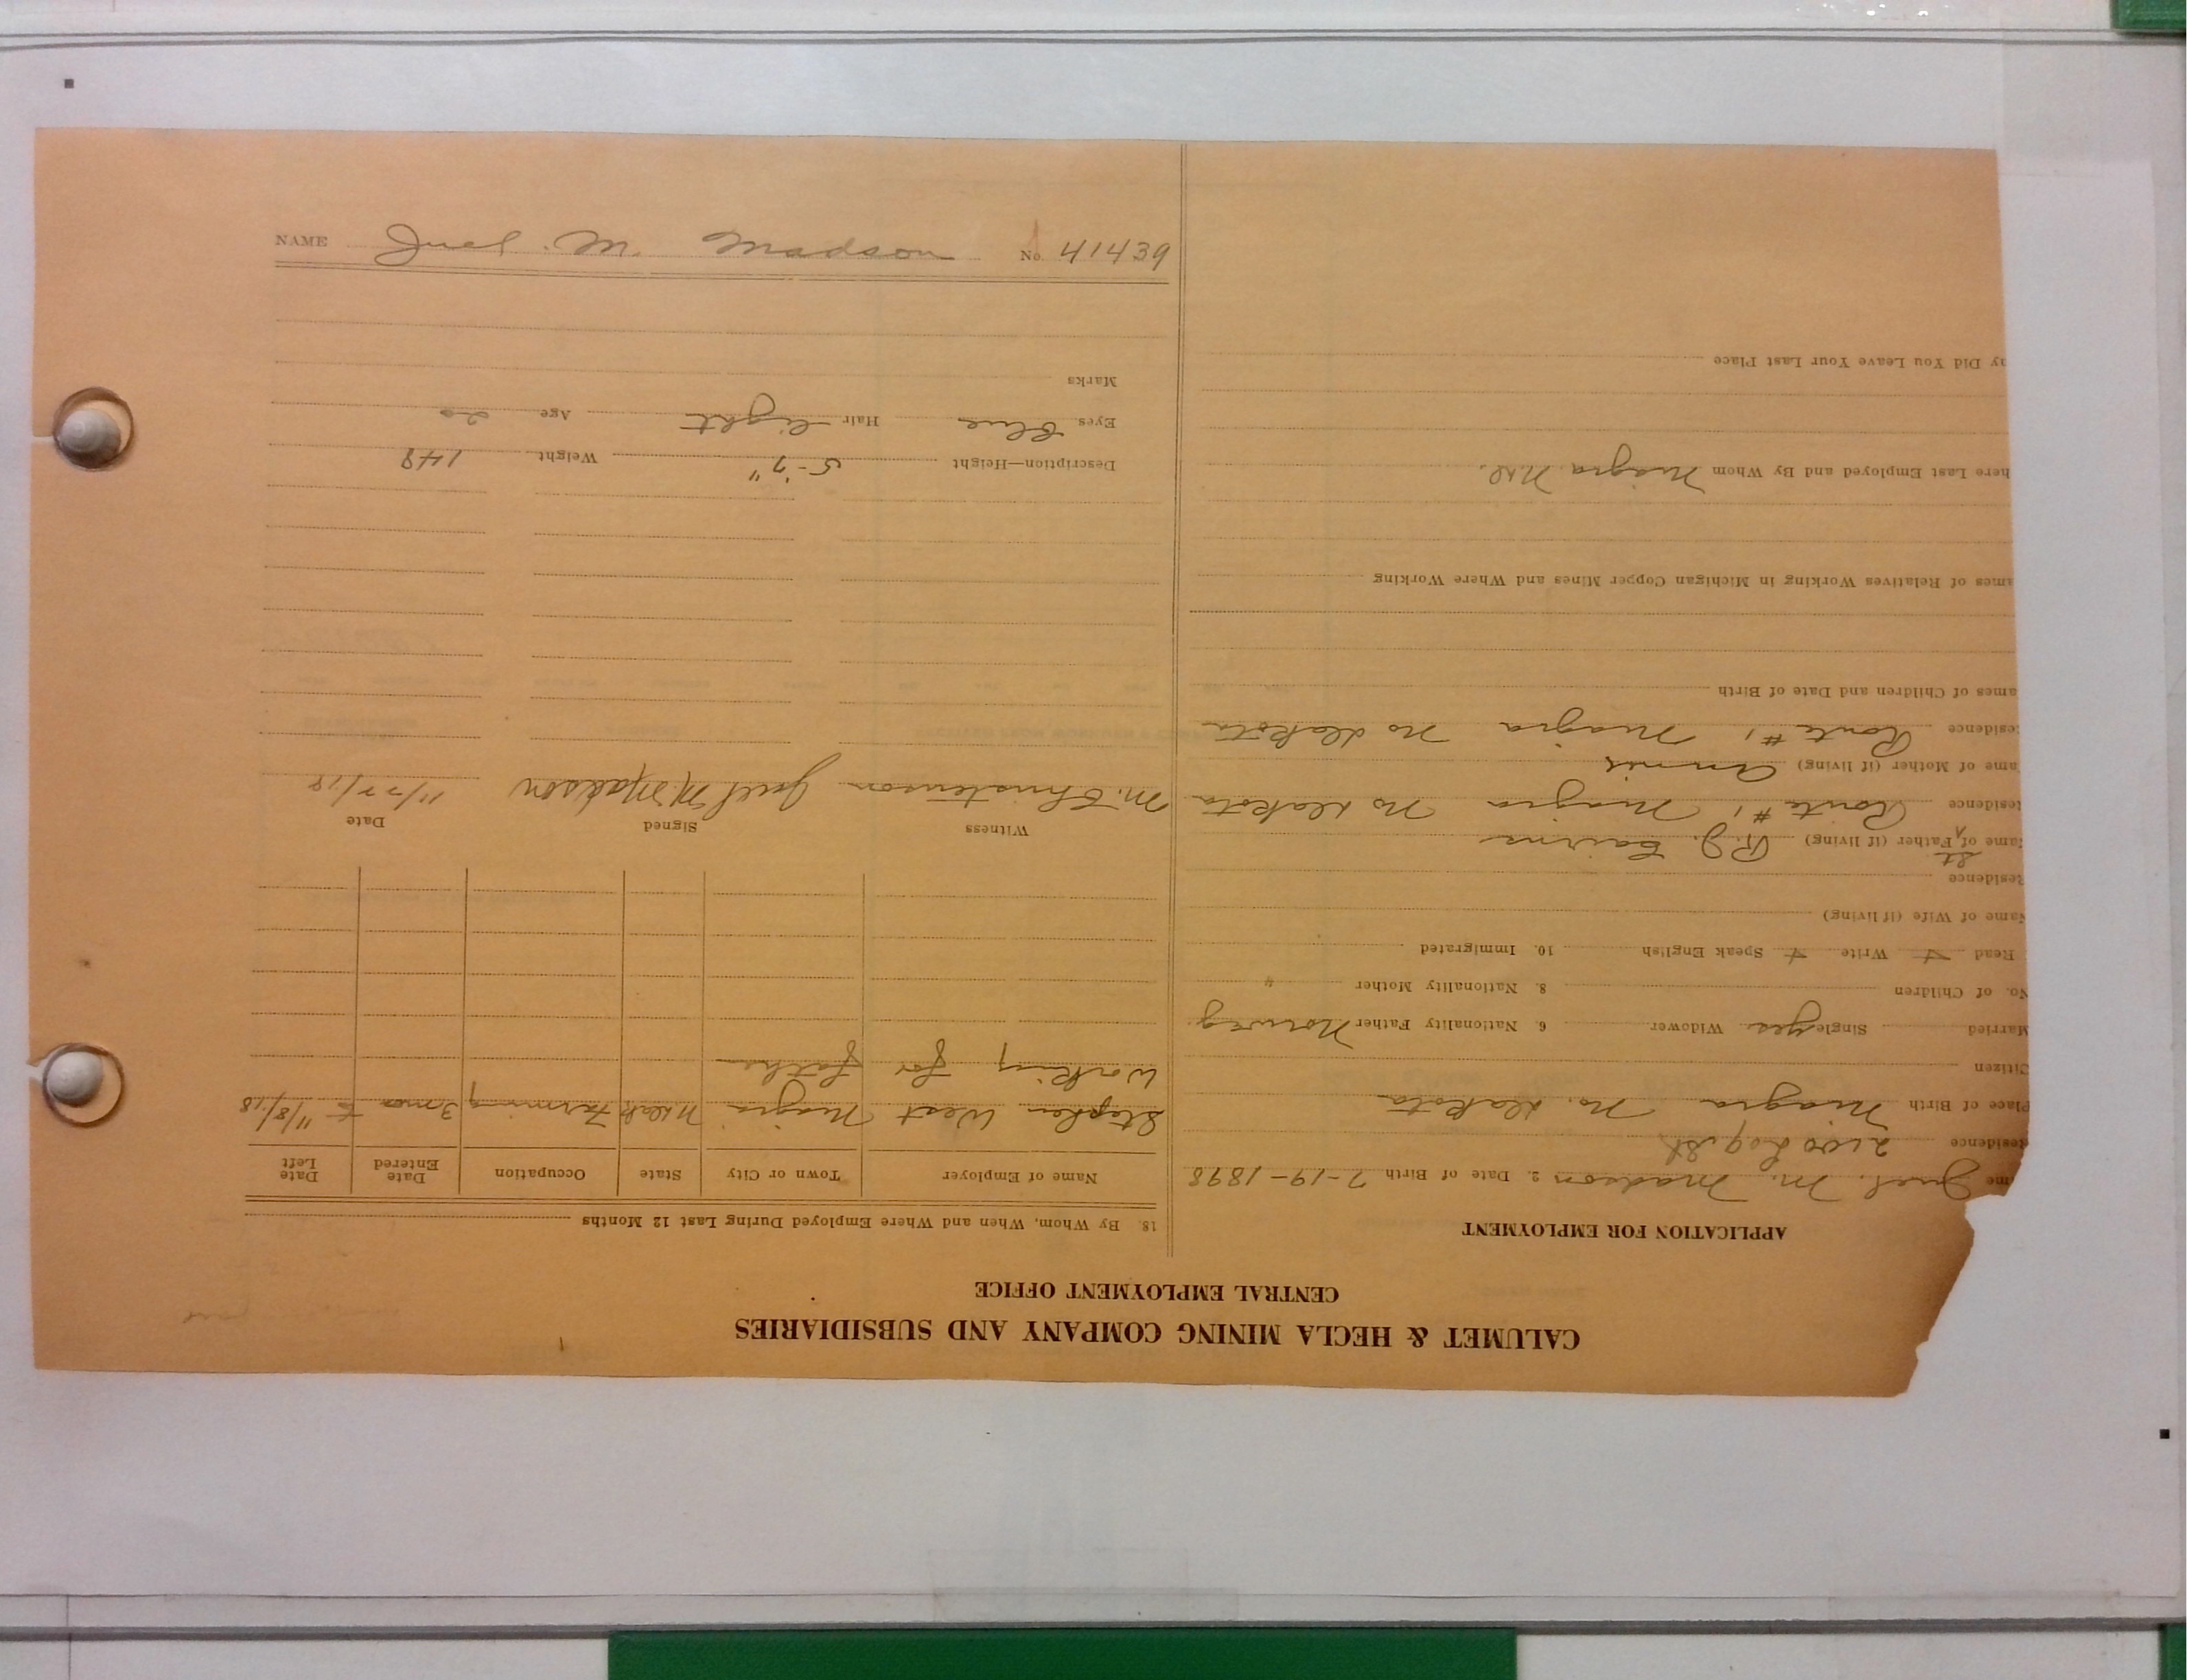 CALUMET & HECLA MINING COMPANY AND SUBSIDIARIES
CENTRAL EMPLOYMENT OFFICE
APPLICATION FOR EMPLOYMENT
me Juel. M. Madson 2. Date of Birth 7-19-1898
Residence 2100 Log St
Place of Birth Niagra No. Dakota
Citizen
Married Single yes Widower 6. Nationality Father Norweg
No. of Children 8. Nationality Mother "
Read + Write + Speak English 10. Immigrated
Name of Wife (if living)
Residence
ame of St Father (if living) R.J. Cairns
Residence Route #1 Niagra No Dakota
ame of Mother (if living) Annie
Residence Route #1 Niagra No Dakota
ames of Children and Date of Birth
ames of Relatives Working in Michigan Copper Mines and Where Working
here Last Employed and By Whom Niagra N.D.
hy Did You Leave Your Last Place
18. By Whom, When and Where Employed During Last 12 Months
Name of Employer Town or City State Occupation Date Entered Date Left
Stephen West Niagra N Dak Farming 3 mos to 11/8/18
Working for father
Witness Signed Date
M. Christenson Juel M. Madson 11/27/18
Description—Height 5-7" Weight 148
Eyes Blue Hair light Age 20
Marks
NAME Juel. M. Madson No. 41439